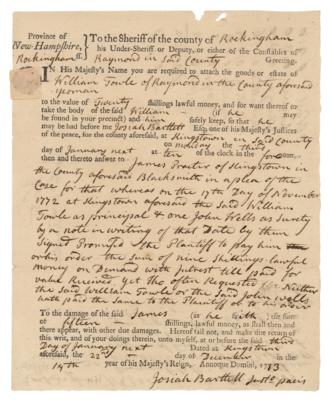 Province of
New-Hampshire,
Rockingham ss.
To the Sheriff of the county of Rockingham
his Under-Sheriff or Deputy, or either of the Constables of
Raymond in said County Greeting.
IN His Majesty's Name you are required to attach the goods or estate of
William Towle of Raymond in the County aforesaid
yeoman
to the value of Twenty shillings lawful money, and for want thereof to
take the body of the said William (if he may
be found in your precinct) and him safely keep, so that he
may be had before me Josiah Bartlett Esq; one of his Majesty's Justices
of the peace, for the county aforesaid, at Kingstown in said county
on monday the third
day of January next at ten of the clock in the forenoon,
then and thereto answer to James Proctor of Kingstown in
the County aforesaid Blacksmith in a plea of the
Case for that whereas on the 17th Day of November
1772 at Kingstown aforesaid the said William
Towle as principal & one John Wells as surety
by a note in writing of that Date by them
Signed Promised the Plaintiff to pay him
or his order the Sum of nine Shillings lawful
money on Demand with Intrest till paid for
value Received yet tho often Requested Neither
the said William Towle or the said John Wells
hath paid the same to the Plaintiff
To the damage of the said James (as he saith) the sum
of fifteen shillings, lawful money, as shall then and
there appear, with other due damages. Hereof fail not, and make due return of
this writ, and of your doings therein, unto myself, at or before the said third
Day of January next Dated at Kingstown
aforesaid, the 22nd day of December in the
14th year of his Majesty's Reign, Annoque Domini, 1773
Josiah Bartlett Just: pacis